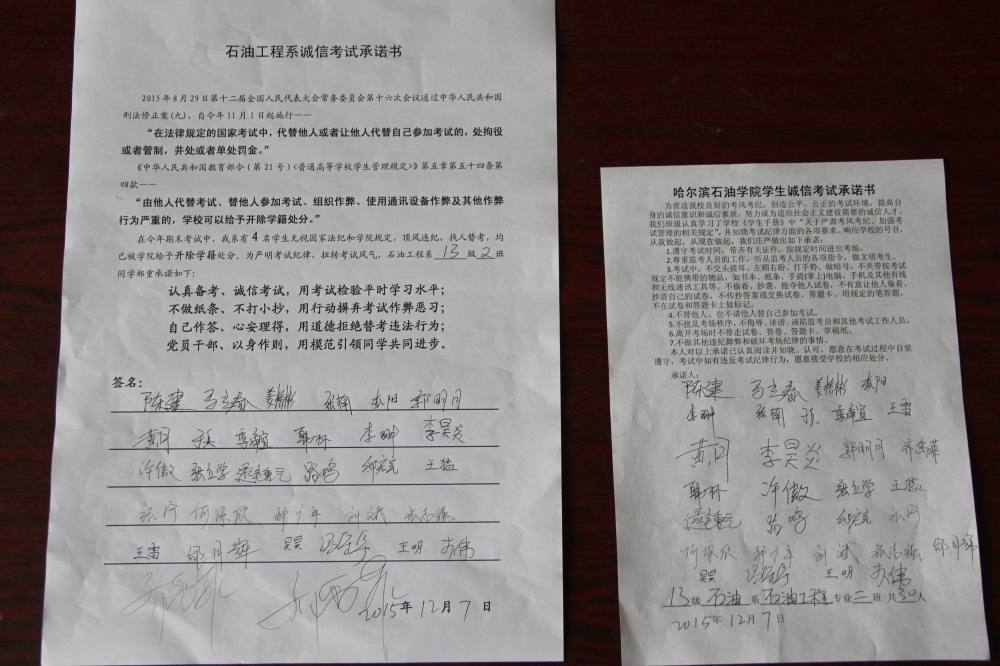 石油工程系诚信考试承诺书
2015年8月29日第十二届全国人民代表大会常务委员会第十六次会议通过中华人民共和国
刑法修正案(九)，自今年11月1日起施行——
“在法律规定的国家考试中，代替他人或者让他人代替自己参加考试的，处拘役
或者管制，并处或者单处罚金。”
《中华人民共和国教育部令(第21号)<普通高等学校学生管理规定>》第五章第五十四条第
四款——
“由他人代替考试、替他人参加考试、组织作弊、使用通讯设备作弊及其他作弊
行为严重的，学校可以给予开除学籍处分。”
在今年期末考试中，我系有4名学生无视国家法纪和学院规定，顶风违纪，找人替考，均
已被学院给予开除学籍处分。为严明考试纪律，扭转考试风气，石油工程系13级2班
同学郑重承诺如下：
认真备考、诚信考试，用考试检验平时学习水平；
不做纸条、不打小抄，用行动摒弃考试作弊恶习；
自己作答、心安理得，用道德拒绝替考违法行为；
党员干部、以身作则，用模范引领同学共同进步。
签名：
陈健 马立春 姜彬彬 张楠 郭明月
黄河 韩林 李珊 李昊炎
许傲 张立学 路鸣 邱宏亮 王猛
张宁 何保欣 邢广年 刘斌 张志强
王雷 邰月辉 吴昊 王明
2015年12月7日
哈尔滨石油学院学生诚信考试承诺书
为营造我校良好的考风考纪，创造公平、公正的考试环境，提高自
身的诚信意识和诚信素质，努力成为适应社会主义建设需要的诚信人才，
我们班级认真学习了学校《学生手册》中“关于严肃考风考纪，加强考
试管理的相关规定”，并知晓考试纪律方面的各项要求。响应学校的号召，
从我做起，从现在做起，我们庄严做出如下承诺：
1.遵守考试时间，带齐有关证件，按规定时间进出考场。
2.尊重监考人员的工作，听从监考人员的各项指令，做文明考生。
3.考试中，不交头接耳、左顾右盼、打手势、做暗号，不夹带按考试
规定不能携带的物品，如书本、纸条、手提(掌上)电脑、手机及其他有线
和无线通讯工具等。不偷看、抄袭、抢夺他人试卷，不有意让他人偷看、
抄袭自己的试卷，不传抄答案或交换试卷、答题卡。用规定的笔答题，
不在试卷和答题卡上做标记。
4.不替他人、也不请他人替自己参加考试。
5.不扰乱考场秩序，不侮辱、诽谤、诬陷监考员和其他考试工作人员。
6.离开考场时不带走试卷、答卷、答题卡、草稿纸。
7.不做其他违纪舞弊和破坏考场纪律的事情。
本人对以上承诺已认真阅读并知晓、认可，愿意在考试过程中自觉
遵守，考试中如有违反考试纪律行为，愿意接受学校的相应处分。
承诺人：
陈健 马立春 姜彬彬
李珊 张楠 王雷
黄河 李昊炎 郭明月
韩林 许傲 张立学 王猛
路鸣 邱宏亮 张宁
何保欣 邢广年 刘斌 张志强 邰月辉
吴昊 王明
13级石油系石油工程专业二班共30人
2015年12月7日